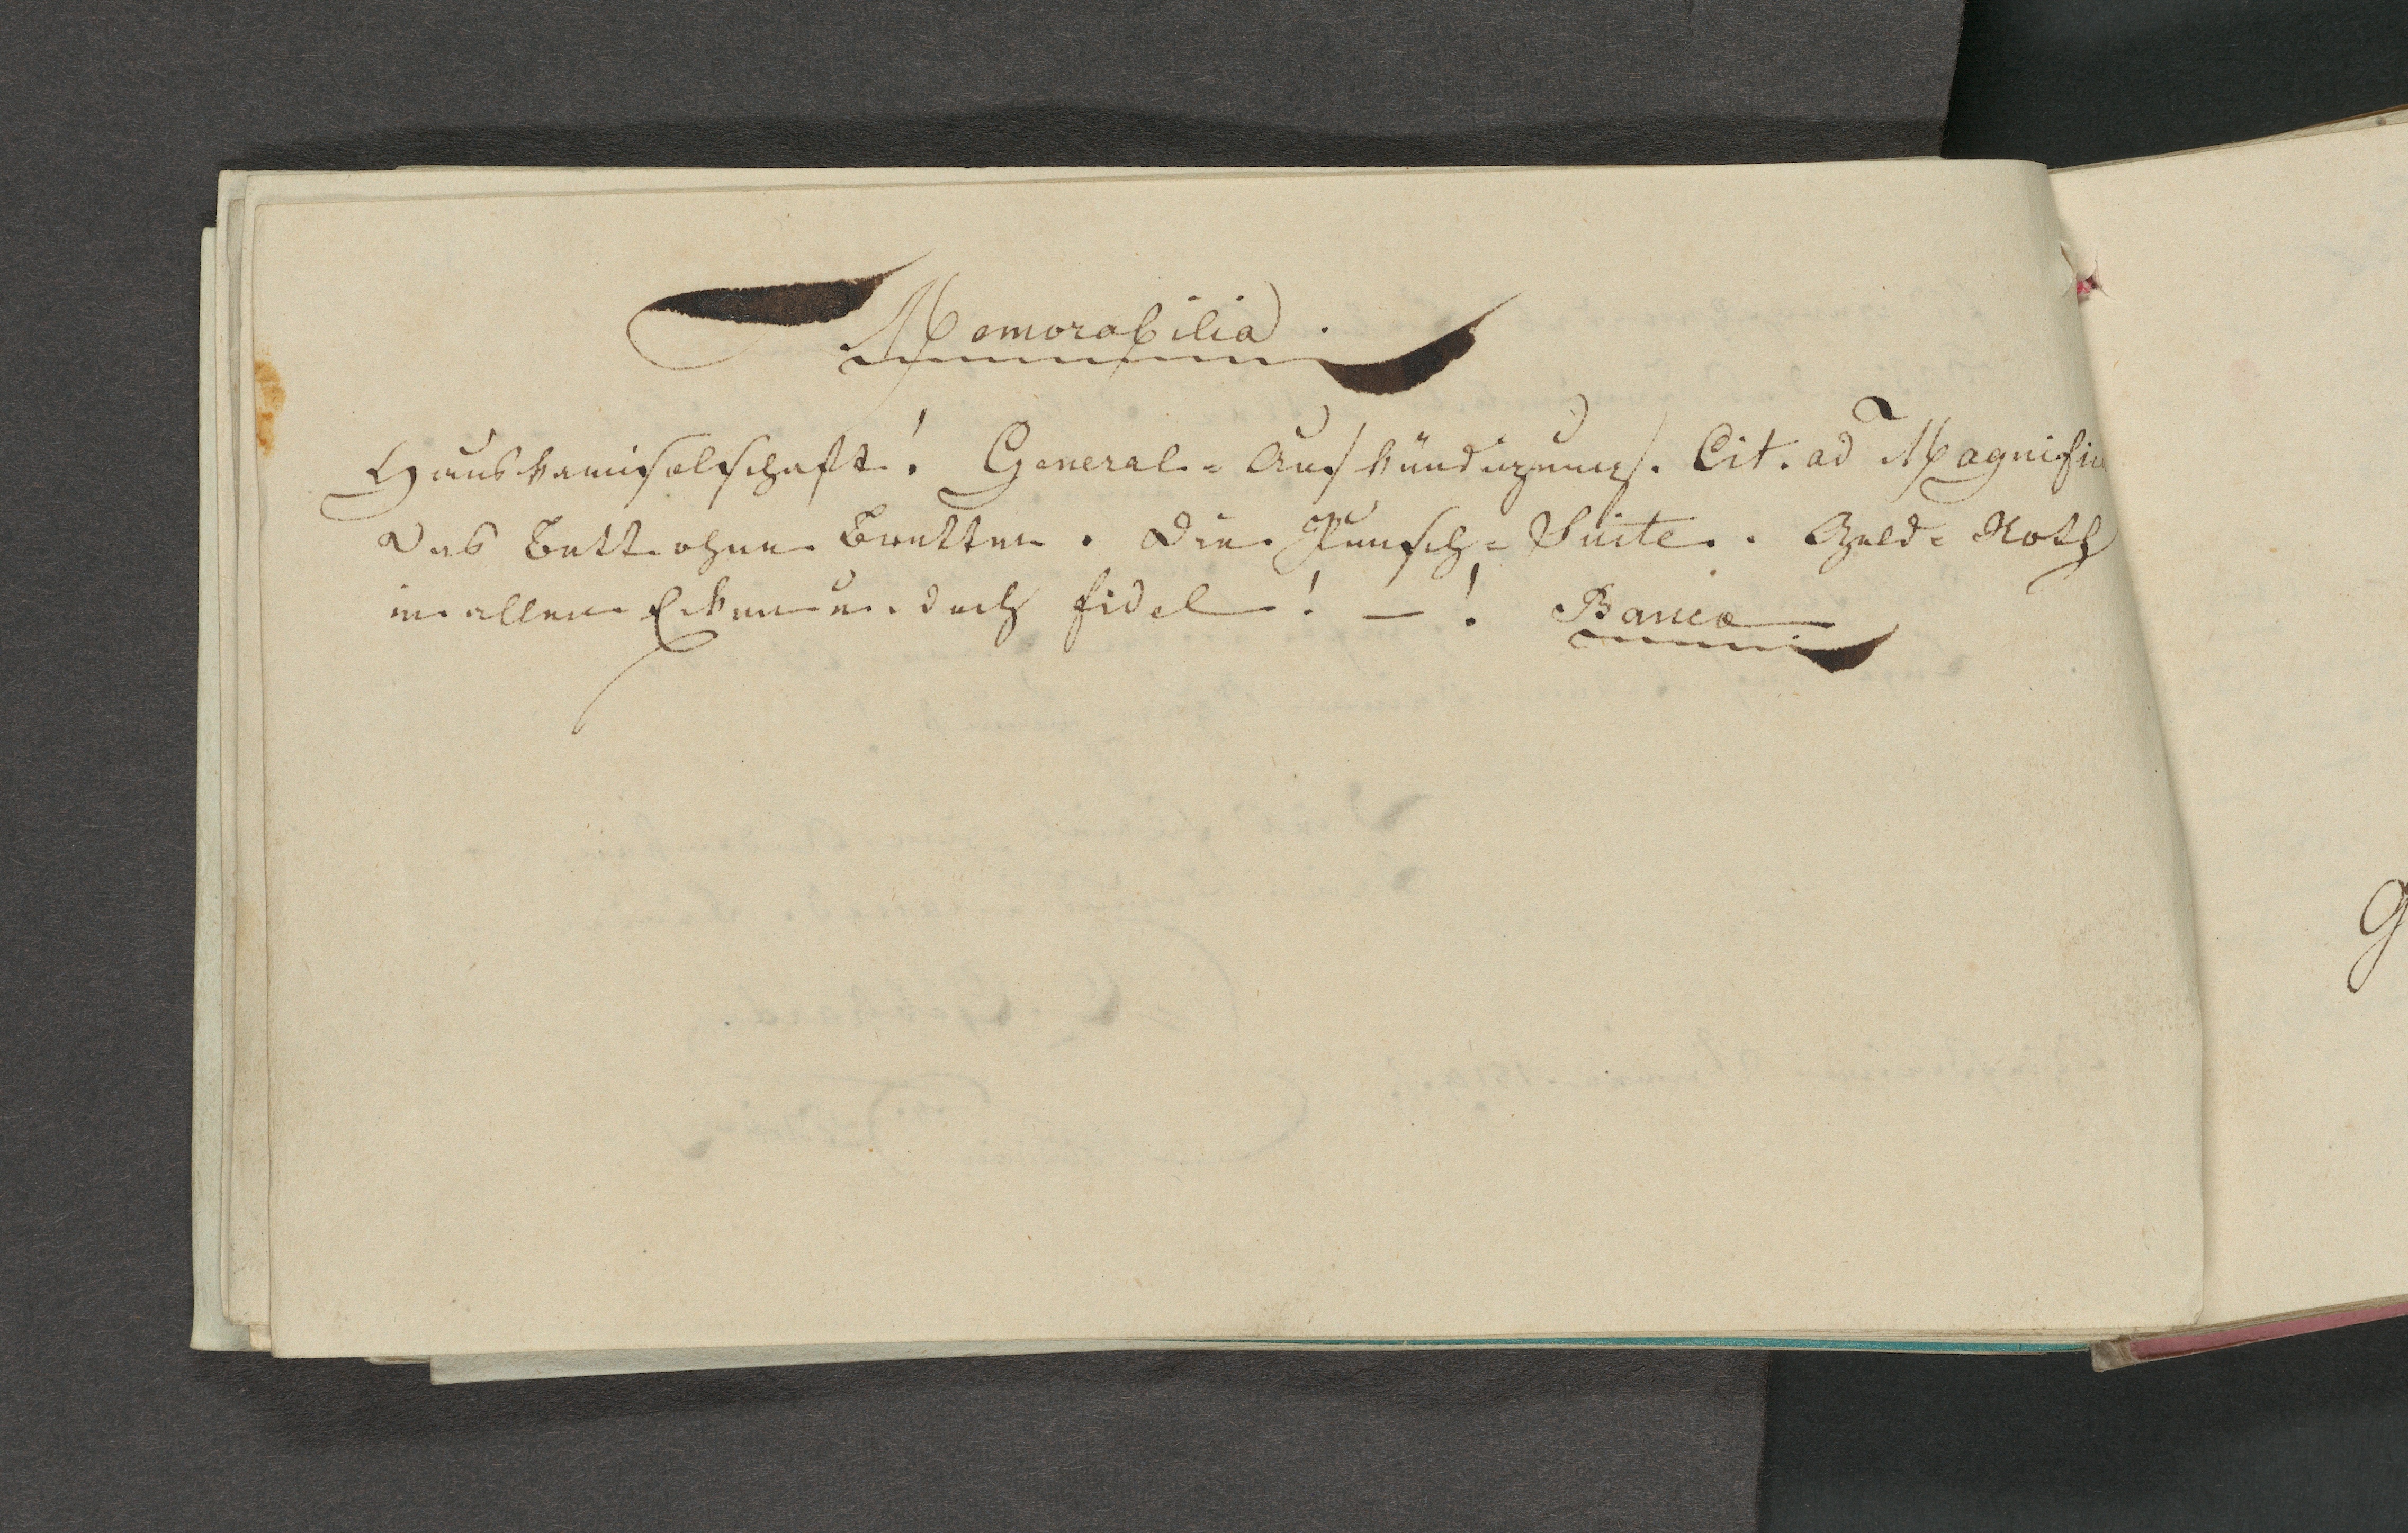 Memorabilia.
Hauskamisolschaft! General-Aufkündigung. Cit. ad Magnific
Das Bett ohne Bretter. Die Punsch-Suite. Geld-Noth
in allen Ecken u. doch fidel! – ! Banco